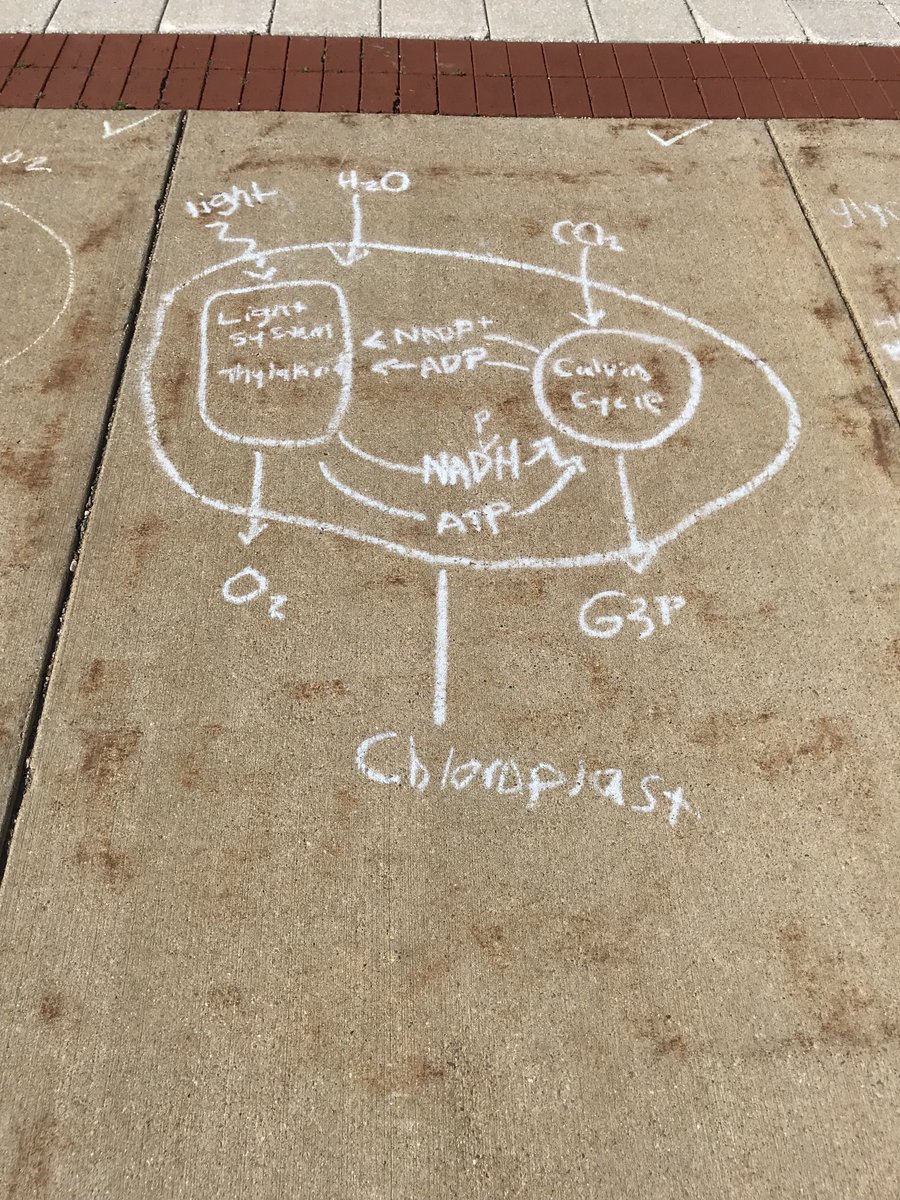 O2
Light
H2O
CO2
Light
System
Thylakoi
NADP+
ADP
Calvin
Cycle
P
NADH
ATP
O2
G3P
Chloroplast
glyc